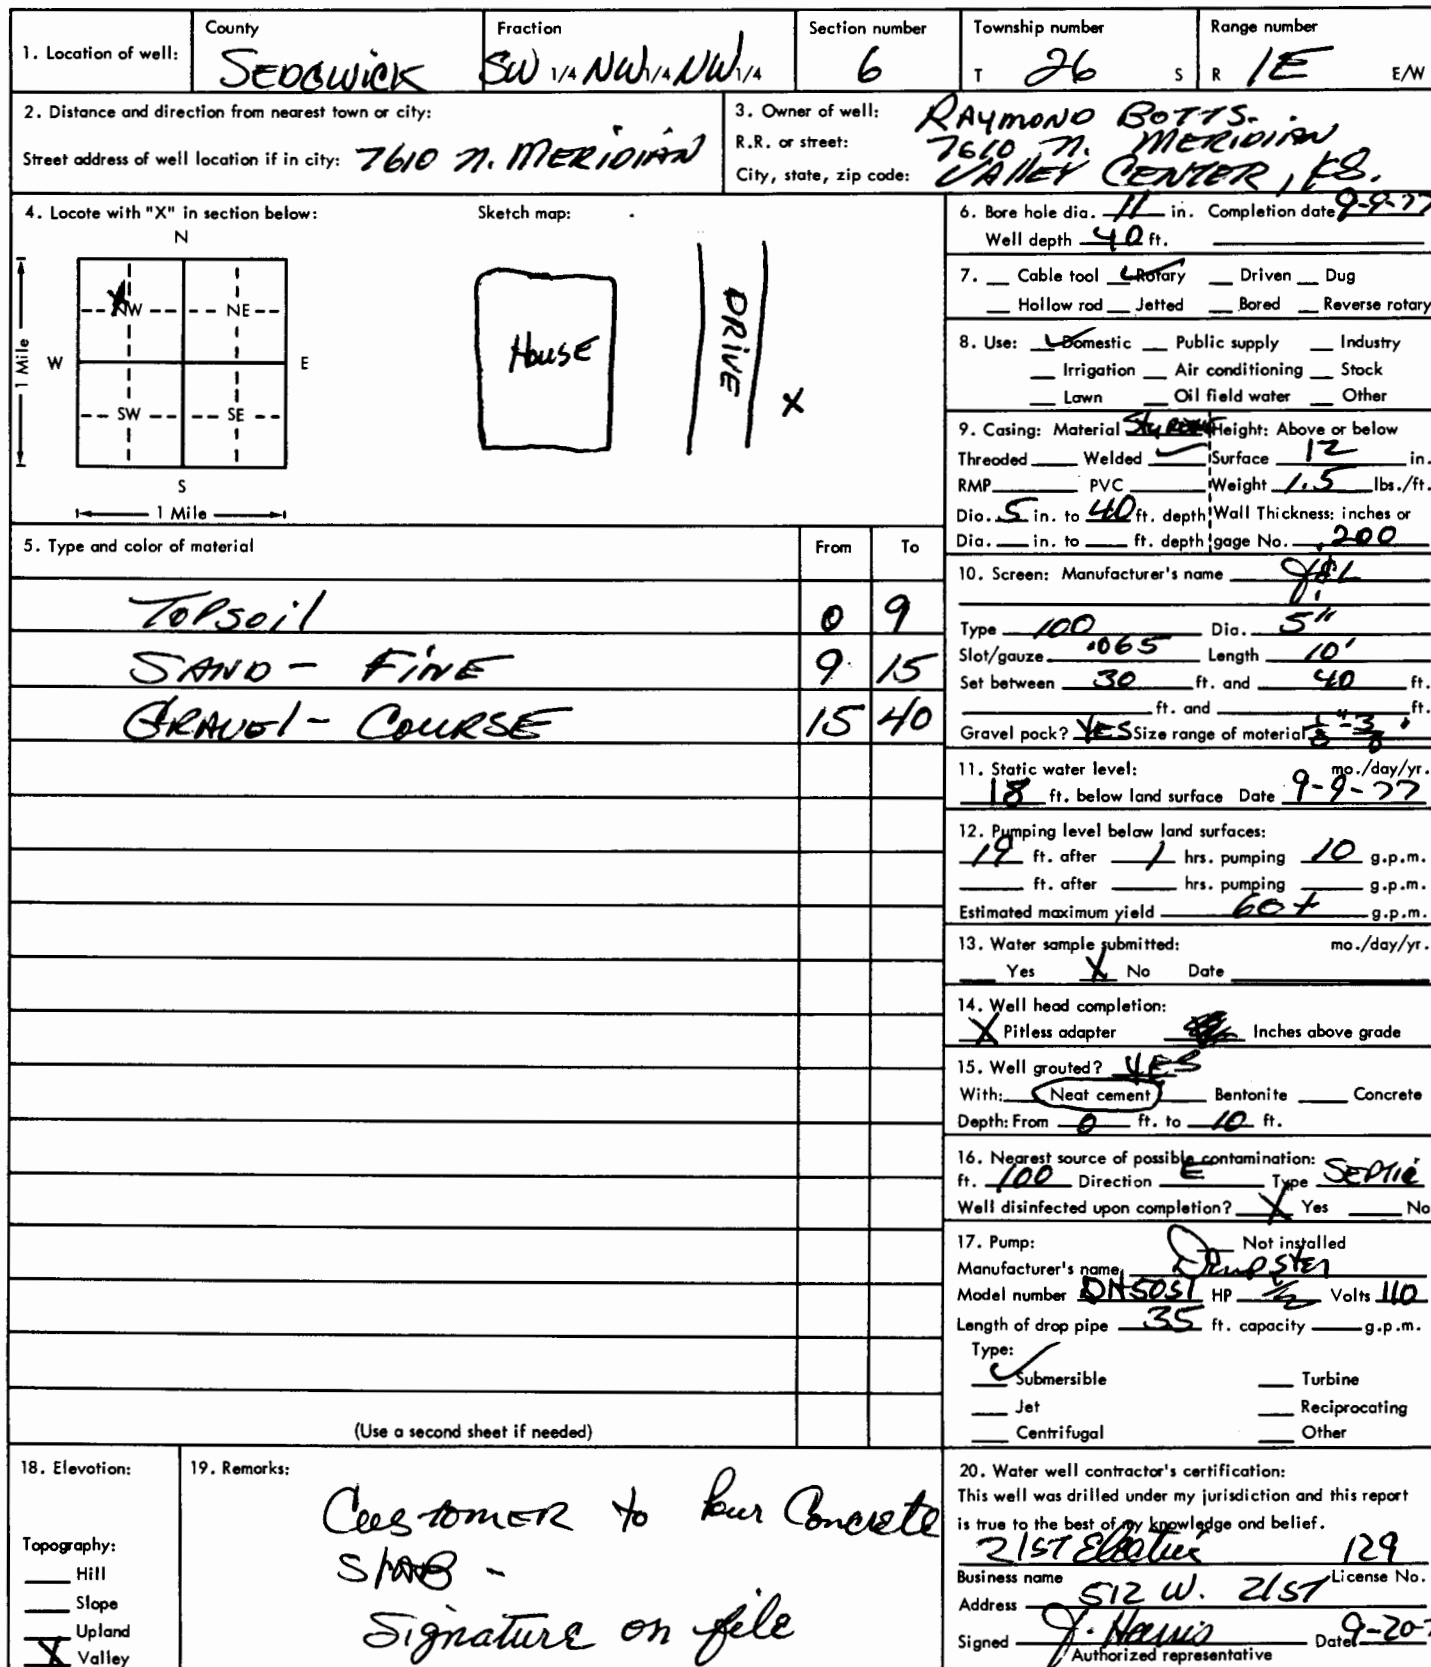 1. Location of well:
County
SEDGWICK
Fraction
SW 1/4 NW 1/4 NW 1/4
Section number
6
Township number
T 26 S
Range number
R 1E E/W
2. Distance and direction from nearest town or city:
Street address of well location if in city: 7610 N. MERIDIAN
3. Owner of well: RAYMOND BOTTS.
R.R. or street: 7610 N. MERIDIAN
City, state, zip code: VALLEY CENTER, KS.
4. Locote with "X" in section below:
Sketch map:
N
NW NE
W E
SW SE
S
1 Mile
1 Mile
X
HousE
DRIVE
X
5. Type and color of material
From To
TOPSOil 0 9
SAND - FINE 9 15
GRAVEl - COURSE 15 40
(Use a second sheet if needed)
6. Bore hole dia. 11 in. Completion date 9-9-77
Well depth 40 ft.
7. Cable tool Rotary Driven Dug
Hollow rod Jetted Bored Reverse rotary
8. Use: Domestic Public supply Industry
Irrigation Air conditioning Stock
Lawn Oil field water Other
9. Casing: Material Height: Above or below
Threoded Welded Surface 12 in.
RMP PVC Weight 1.5 lbs./ft.
Dio. 5 in. to 40 ft. depth Wall Thickness: inches or
Dia. in. to ft. depth gage No. .200
10. Screen: Manufacturer's name
Type 100 Dia. 5"
Slot/gauze .065 Length 10'
Set between 30 ft. and 40 ft.
ft. and ft.
Gravel pock? YES Size range of material 1/8" - 3/8"
11. Static water level: mo./day/yr.
18 ft. below land surface Date 9-9-77
12. Pumping level below land surfaces:
19 ft. after 1 hrs. pumping 10 g.p.m.
ft. after hrs. pumping g.p.m.
Estimated maximum yield 60+ g.p.m.
13. Water sample submitted: mo./day/yr.
Yes X No Date
14. Well head completion:
X Pitless adapter Inches above grade
15. Well grouted? YES
With: Neat cement Bentonite Concrete
Depth: From 0 ft. to 10 ft.
16. Nearest source of possible contamination:
ft. 100 Direction E Type SEPTIC
Well disinfected upon completion? X Yes No
17. Pump: Not installed
Manufacturer's name DEmpSTER
Model number DH5051 HP 1/2 Volts 110
Length of drop pipe 35 ft. capacity g.p.m.
Type:
Submersible Turbine
Jet Reciprocating
Centrifugal Other
18. Elevotion:
Topography:
Hill
Slope
Upland
X Valley
19. Remarks:
CUSTOMER to Pour Concrete
SlAB -
Signature on file
20. Water well contractor's certification:
This well was drilled under my jurisdiction and this report
is true to the best of my knowledge and belief.
21ST Electric 129
Business name License No.
Address 512 W. 21ST
Signed J. Harris Date 9-20-
Authorized representative